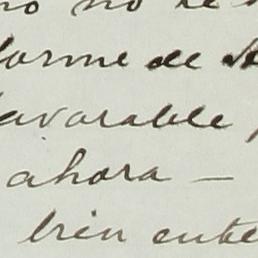 no no se
forme de
favorable
ahora —
bien ente